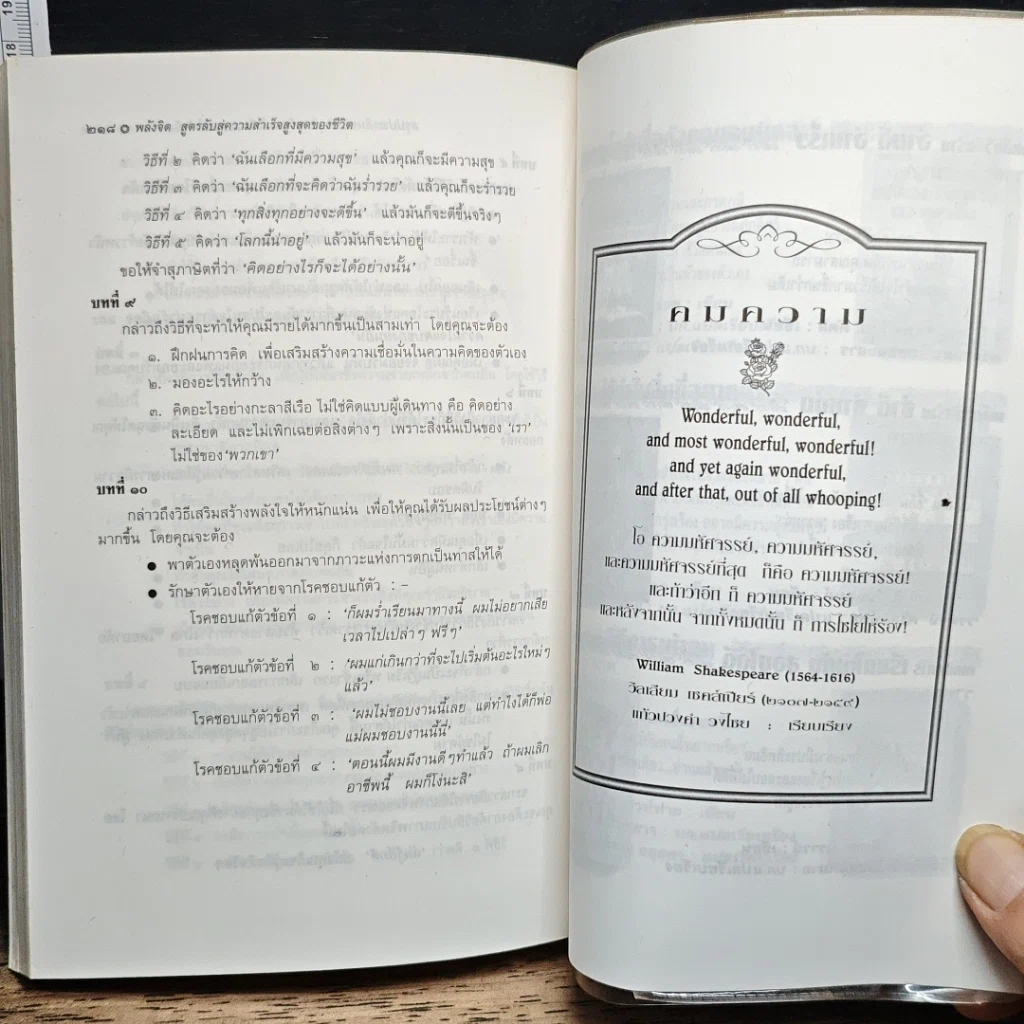 19
18
๒๑๘ ๐ พลังจิต สูตรลับสู่ความสำเร็จสูงสุดของชีวิต
วิธีที่ ๒ คิดว่า ‘ฉันเลือกที่มีความสุข’ แล้วคุณก็จะมีความสุข
วิธีที่ ๓ คิดว่า ‘ฉันเลือกที่จะคิดว่าฉันร่ำรวย’ แล้วคุณก็จะร่ำรวย
วิธีที่ ๔ คิดว่า ‘ทุกสิ่งทุกอย่างจะดีขึ้น’ แล้วมันก็จะดีขึ้นจริงๆ
วิธีที่ ๕ คิดว่า ‘โลกนี้น่าอยู่’ แล้วมันก็จะน่าอยู่
ขอให้จำสุภาษิตที่ว่า ‘คิดอย่างไรก็จะได้อย่างนั้น’
บทที่ ๙
กล่าวถึงวิธีที่จะทำให้คุณมีรายได้มากขึ้นเป็นสามเท่า โดยคุณจะต้อง
๑. ฝึกฝนการคิด เพื่อเสริมสร้างความเชื่อมั่นในความคิดของตัวเอง
๒. มองอะไรให้กว้าง
๓. คิดอะไรอย่างกะลาสีเรือ ไม่ใช่คิดแบบผู้เดินทาง คือ คิดอย่าง
ละเอียด และไม่เพิกเฉยต่อสิ่งต่างๆ เพราะสิ่งนั้นเป็นของ ‘เรา’
ไม่ใช่ของ‘พวกเขา’
บทที่ ๑๐
กล่าวถึงวิธีเสริมสร้างพลังใจให้หนักแน่น เพื่อให้คุณได้รับผลประโยชน์ต่างๆ
มากขึ้น โดยคุณจะต้อง
● พาตัวเองหลุดพ้นออกมาจากภาวะแห่งการตกเป็นทาสให้ได้
● รักษาตัวเองให้หายจากโรคชอบแก้ตัว : -
โรคชอบแก้ตัวข้อที่ ๑ : ‘ก็ผมร่ำเรียนมาทางนี้ ผมไม่อยากเสีย
เวลาไปเปล่าๆ ฟรีๆ’
โรคชอบแก้ตัวข้อที่ ๒ : ‘ผมแก่เกินกว่าที่จะไปเริ่มต้นอะไรใหม่ๆ
แล้ว’
โรคชอบแก้ตัวข้อที่ ๓ : ‘ผมไม่ชอบงานนี้เลย แต่ทำไงได้ก็พ่อ
แม่ผมชอบงานนี้นี่’
โรคชอบแก้ตัวข้อที่ ๔ : ‘ตอนนี้ผมมีงานดีๆทำแล้ว ถ้าผมเลิก
อาชีพนี้ ผมก็โง่นะสิ’
คมความ
Wonderful, wonderful,
and most wonderful, wonderful!
and yet again wonderful,
and after that, out of all whooping!
โอ ความมหัศจรรย์, ความมหัศจรรย์,
และความมหัศจรรย์ที่สุด ก็คือ ความมหัศจรรย์!
และถ้าว่าอีก ก็ ความมหัศจรรย์
และหลังจากนั้น จากทั้งหมดนั้น ก็ การโห่ไห้ร้อง!
William Shakespeare (1564-1616)
วิลเลียม เชคสเปียร์ (๒๑๐๗-๒๑๕๙)
แก้วปวงคำ วงไชย : เรียบเรียง